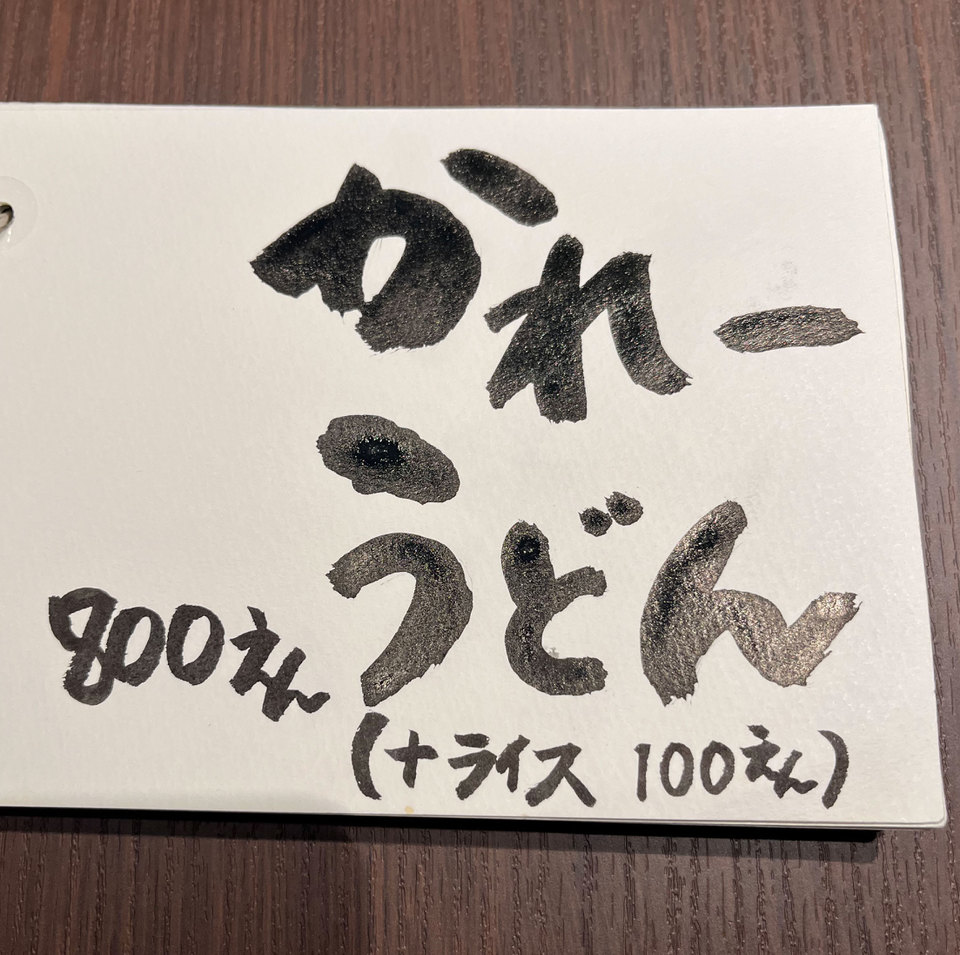 かれー
うどん
800えん
(+ライス 100えん)